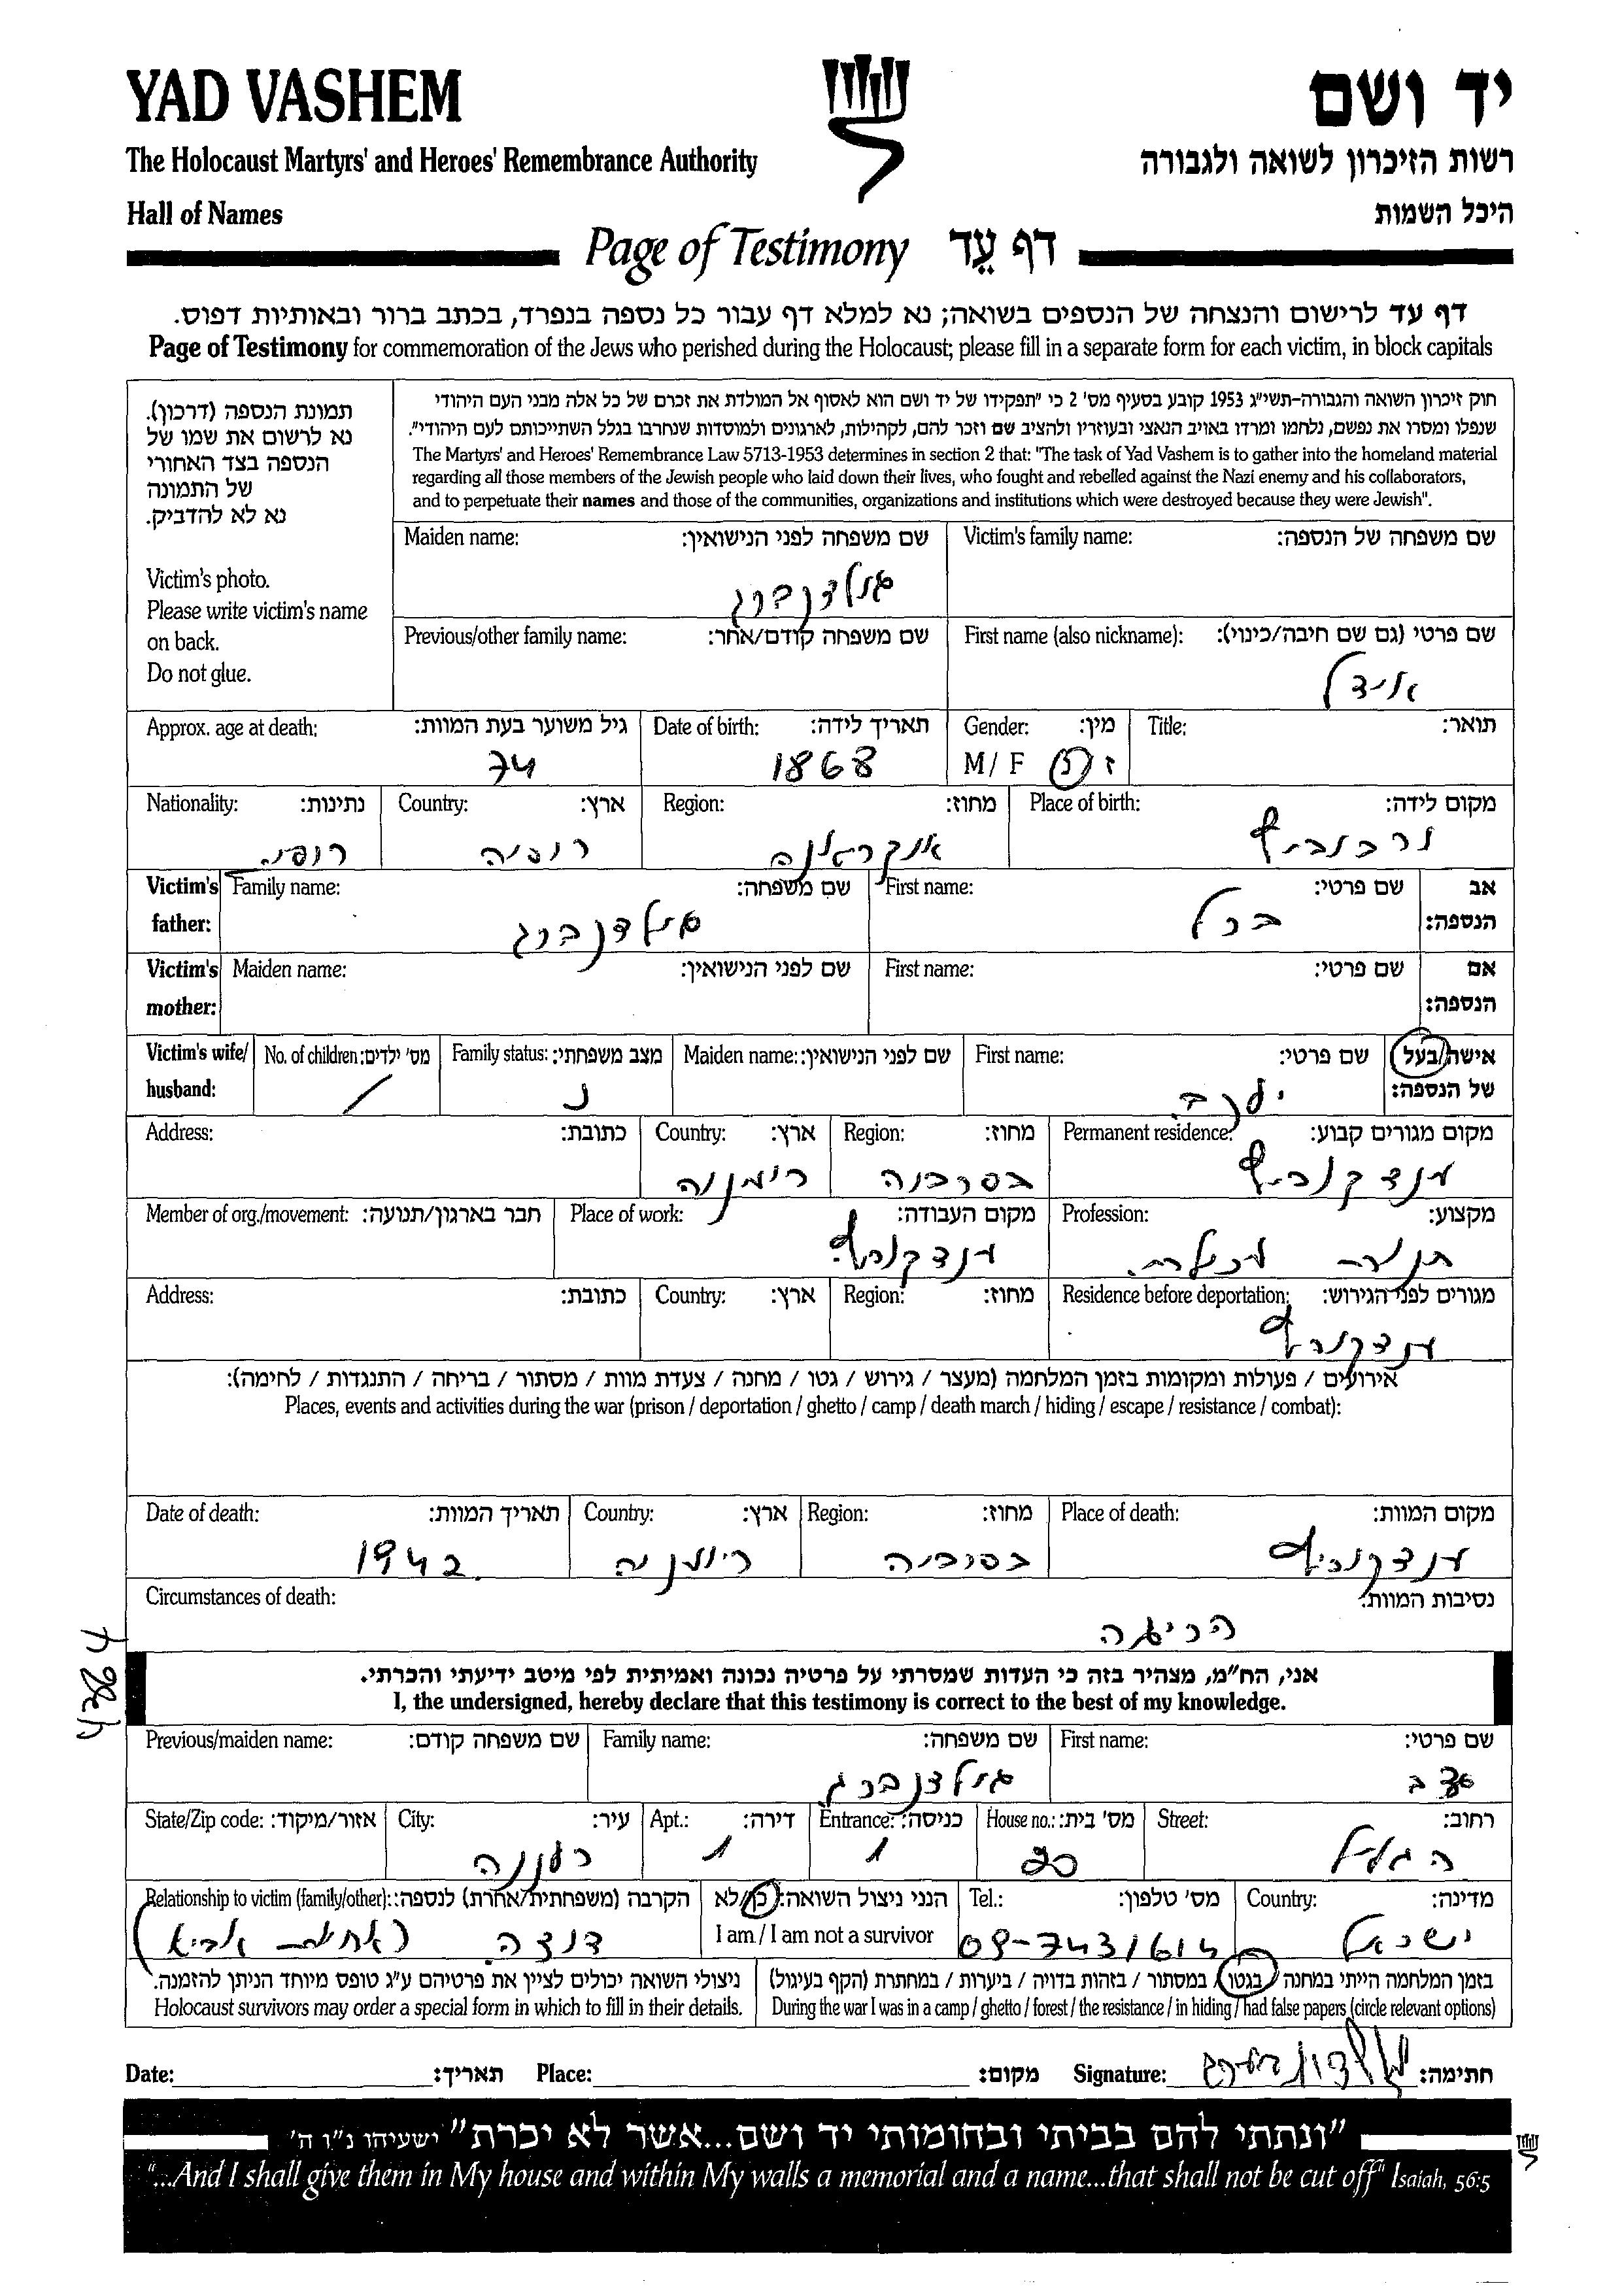 YAD VASHEM
יד ושם
The Holocaust Martyrs' and Heroes' Remembrance Authority
רשות הזיכרון לשואה ולגבורה
Hall of Names
היכל השמות
Page of Testimony דף עֵד
דף עד לרישום והנצחה של הנספים בשואה; נא למלא דף עבור כל נספה בנפרד, בכתב ברור ובאותיות דפוס.
Page of Testimony for commemoration of the Jews who perished during the Holocaust; please fill in a separate form for each victim, in block capitals
תמונת הנספה (דרכון).
נא לרשום את שמו של
הנספה בצד האחורי
של התמונה
נא לא להדביק.
Victim's photo.
Please write victim's name
on back.
Do not glue.
חוק זיכרון השואה והגבורה-תשי"ג 1953 קובע בסעיף מס' 2 כי "תפקידו של יד ושם הוא לאסוף אל המולדת את זכרם של כל אלה מבני העם היהודי
שנפלו ומסרו את נפשם, נלחמו ומרדו באויב הנאצי ובעוזריו ולהציב שם וזכר להם, לקהילות, לארגונים ולמוסדות שנחרבו בגלל השתייכותם לעם היהודי".
The Martyrs' and Heroes' Remembrance Law 5713-1953 determines in section 2 that: "The task of Yad Vashem is to gather into the homeland material
regarding all those members of the Jewish people who laid down their lives, who fought and rebelled against the Nazi enemy and his collaborators,
and to perpetuate their names and those of the communities, organizations and institutions which were destroyed because they were Jewish".
Victim's family name: שם משפחה של הנספה:
Maiden name: שם משפחה לפני הנישואין:
גולדנברג
First name (also nickname): שם פרטי (גם שם חיבה/כינוי):
אידל
Previous/other family name: שם משפחה קודם/אחר:
Title: תואר:
Gender: מין:
M / F ז נ
Date of birth: תאריך לידה:
1868
Approx. age at death: גיל משוער בעת המוות:
74
Place of birth: מקום לידה:
Region: מחוז:
אוקראינה
Country: ארץ:
רוסיה
Nationality: נתינות:
רוסיה
Victim's father: אב הנספה:
First name: שם פרטי:
ברל
Family name: שם משפחה:
גולדנברג
Victim's mother: אם הנספה:
First name: שם פרטי:
Maiden name: שם לפני הנישואין:
Victim's wife/ husband: אישה/בעל של הנספה:
First name: שם פרטי:
יעקב
Maiden name: שם לפני הנישואין:
Family status: מצב משפחתי:
נ
No. of children: מס' ילדים:
/
Permanent residence: מקום מגורים קבוע:
ונדקוביץ
Region: מחוז:
בסרביה
Country: ארץ:
רומניה
Address: כתובת:
Profession: מקצוע:
Place of work: מקום העבודה:
Member of org./movement: חבר בארגון/תנועה:
Residence before deportation: מגורים לפני הגירוש:
Region: מחוז:
Country: ארץ:
Address: כתובת:
אירועים / פעולות ומקומות בזמן המלחמה (מעצר / גירוש / גטו / מחנה / צעדת מוות / מסתור / בריחה / התנגדות / לחימה):
Places, events and activities during the war (prison / deportation / ghetto / camp / death march / hiding / escape / resistance / combat):
Place of death: מקום המוות:
Region: מחוז:
בסרביה
Country: ארץ:
רומניה
Date of death: תאריך המוות:
1942
Circumstances of death: נסיבות המוות:
הריגה
אני, הח"מ, מצהיר בזה כי העדות שמסרתי על פרטיה נכונה ואמיתית לפי מיטב ידיעתי והכרתי.
I, the undersigned, hereby declare that this testimony is correct to the best of my knowledge.
First name: שם פרטי:
Family name: שם משפחה:
גולדנברג
Previous/maiden name: שם משפחה קודם:
Street: רחוב:
הגליל
House no.: מס' בית:
Entrance: כניסה:
1
Apt.: דירה:
1
City: עיר:
רעננה
State/Zip code: אזור/מיקוד:
Country: מדינה:
ישראל
Tel.: מס' טלפון:
09-7431614
הנני ניצול השואה: כן/לא
I am / I am not a survivor
Relationship to victim (family/other): הקרבה (משפחתית/אחרת) לנספה:
דודה (אחות אביא)
בזמן המלחמה הייתי במחנה / בגטו / במסתור / בזהות בדויה / ביערות / במחתרת (הקף בעיגול)
During the war I was in a camp / ghetto / forest / the resistance / in hiding / had false papers (circle relevant options)
ניצולי השואה יכולים לציין את פרטיהם ע"ג טופס מיוחד הניתן להזמנה.
Holocaust survivors may order a special form in which to fill in their details.
Date: תאריך: Place: מקום: Signature: חתימה:
"ונתתי להם בביתי ובחומותי יד ושם...אשר לא יכרת" ישעיהו נ"ו ה'
"...And I shall give them in My house and within My walls a memorial and a name...that shall not be cut off" Isaiah, 56:5